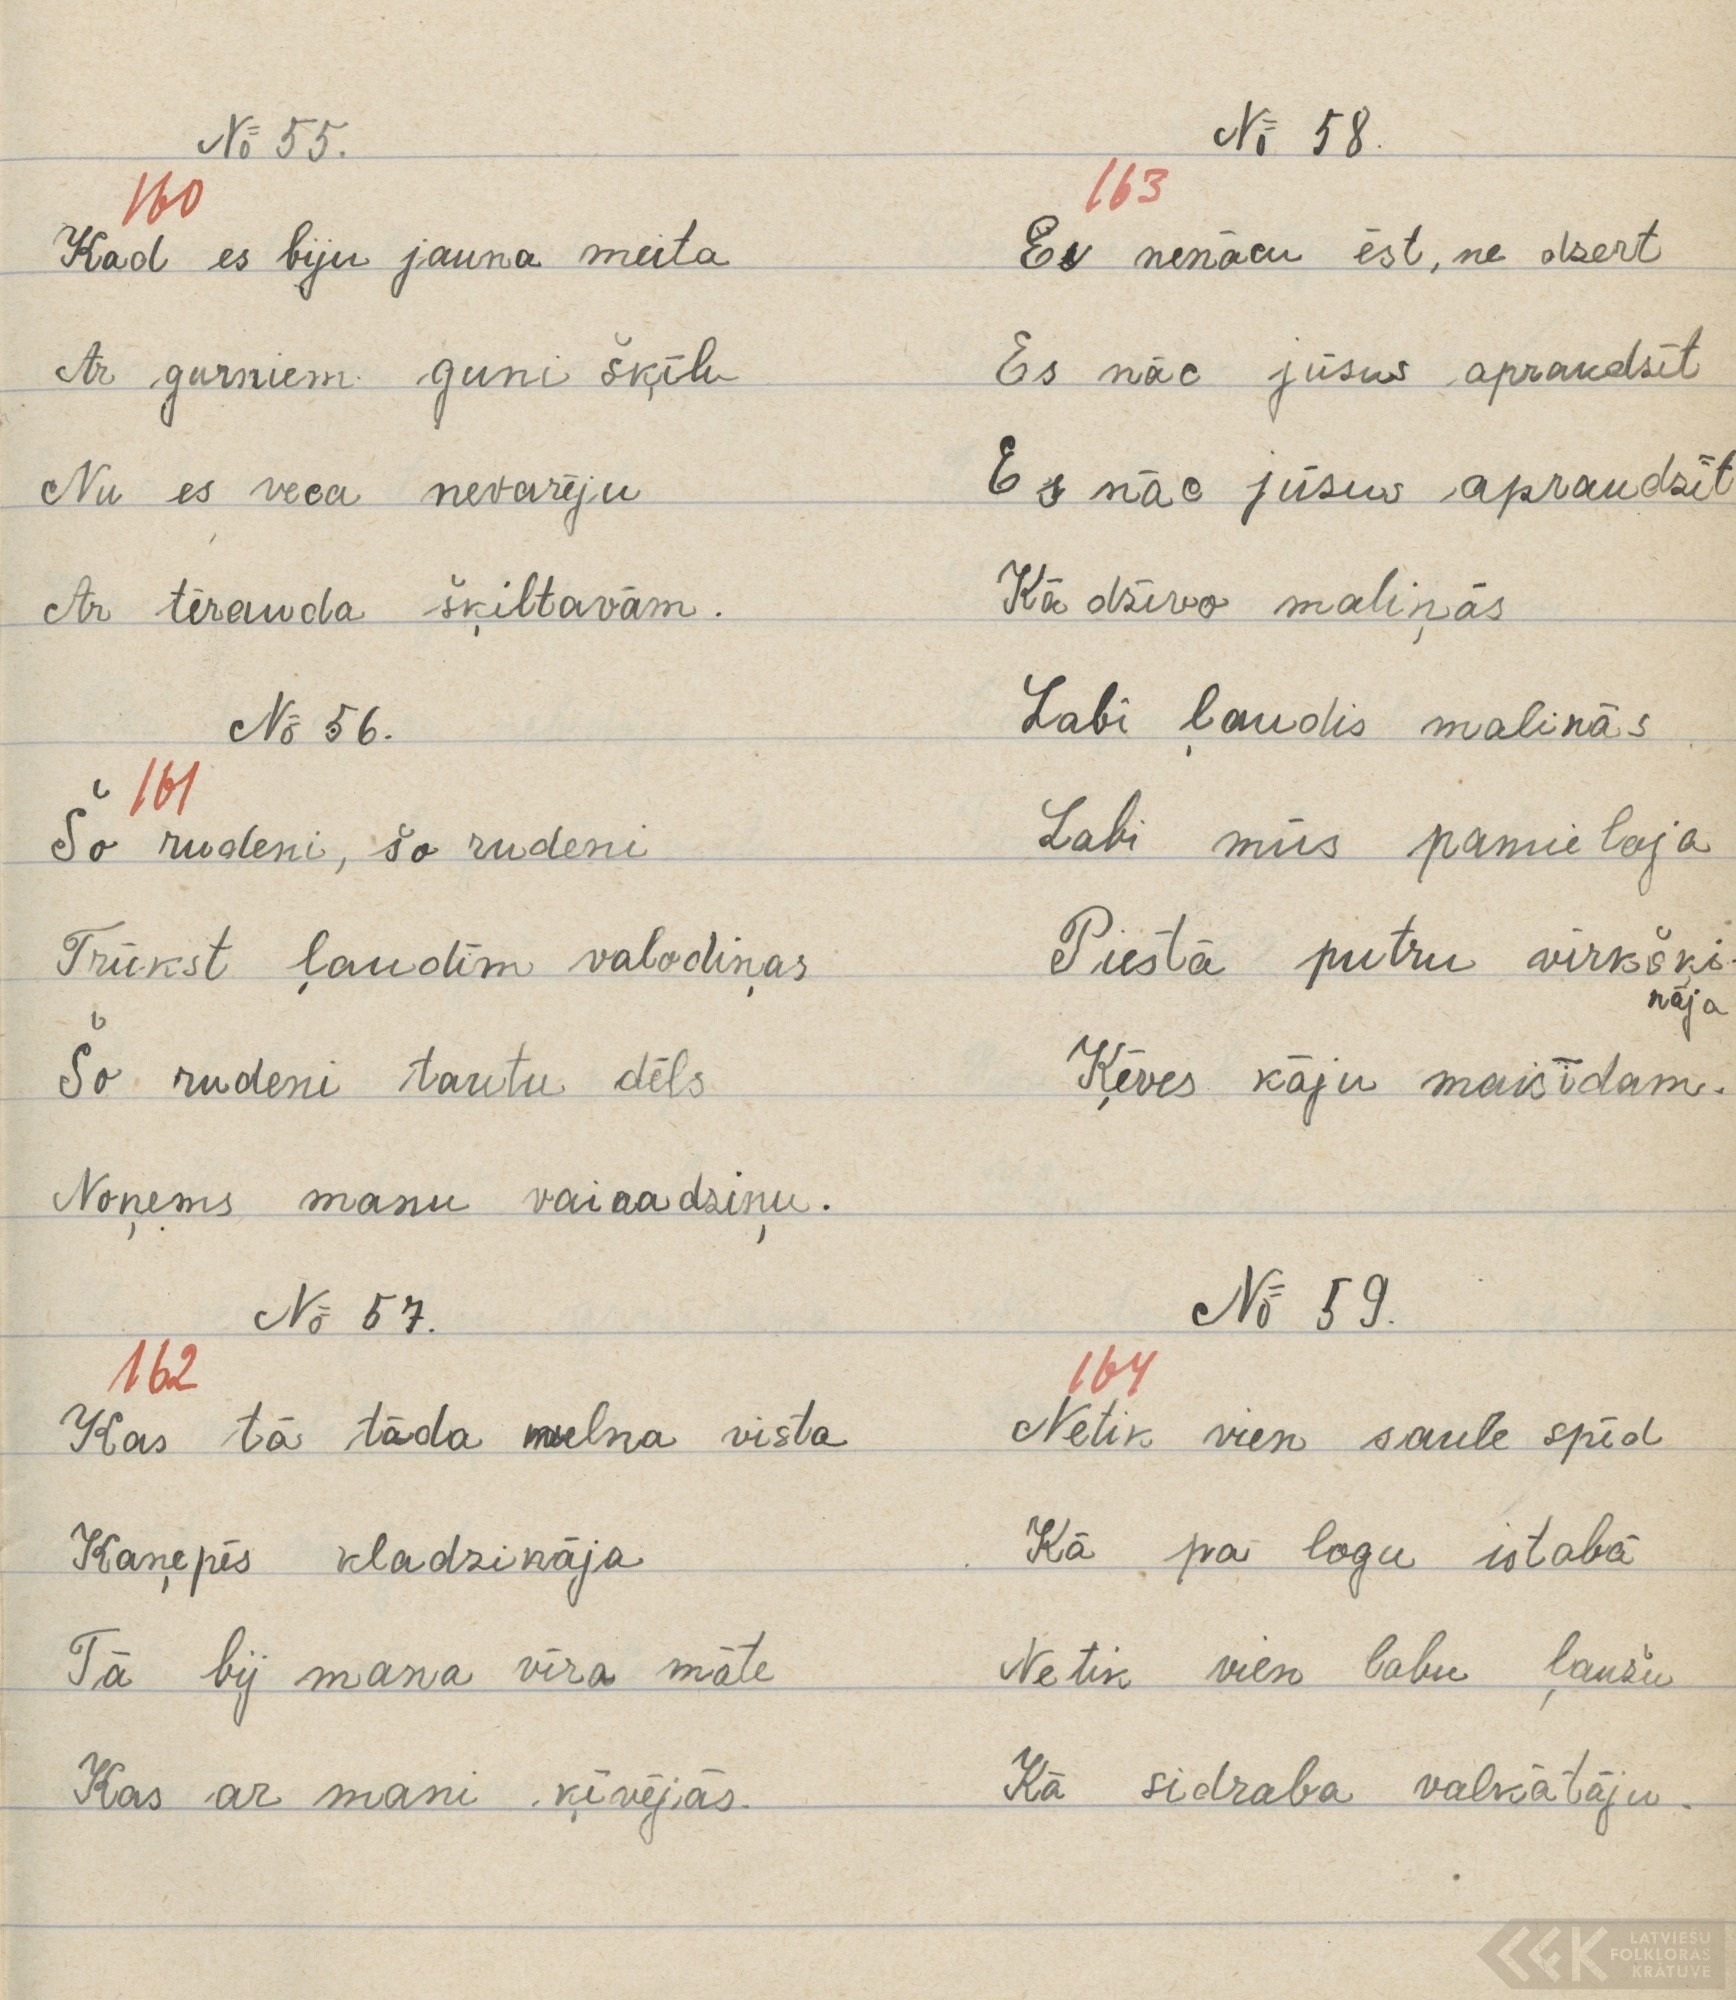 № 55.
160
Kad es biju jauna meita
Ar gurniem guni šķīlu
Nu es veca nevarēju
Ar tērauda šķiltavām.
№ 56.
161
Šo rudeni, šo rudeni
Trūkst ļaudīm valodiņas
Šo rudeni tautu dēls
Noņems manu vainadziņu.
№ 57.
162
Kas tā tāda melna vista
Kaņepēs kladzināja
Tā bij mana vīra māte
Kas ar mani ķīvējās.
№ 58.
163
Es nenācu ēst, ne dzert
Es nāc jūsus apraudzīt
Es nāc jūsus apraudzīt
Kā dzīvo maliņās
Labi ļaudis malinās
Labi mūs pamieloja
Piestā putru virkšķi-
nāja
Ķēves kāju maisīdam.
№ 59.
164
Netik vien saule spīd
Kā pa logu istabā
Netik vien labu ļaužu
Kā sidraba valkātāju.
LATVIEŠU
FOLKLORAS
KRĀTUVE